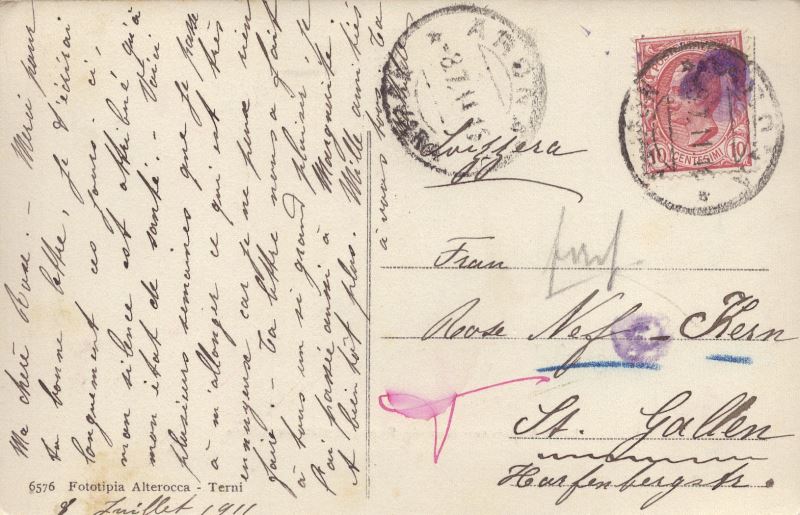 Ma chère Rose. - Merci pour
ta bonne lettre, je t'écrirai
longuement ces jours-ci,
mon silence est attribué qu'à
mon état de santé. - Voici
plusieurs semaines que je passe
à m'allonger ce qui est très
ennuyeux car je ne peux rien
faire. - Ta lettre nous a fait
à tous un si grand plaisir, je
l'ai passée aussi à Marguerite.
A bien tôt plus. Mille amitiés
à vous tous ta
8 Juillet 1911
6576 Fototipia Alterocca - Terni
8.7.11
10 CENTESIMI 10
Svizzera
Frau
Rose Nef-Kern
St. Gallen
Harfenbergstr.